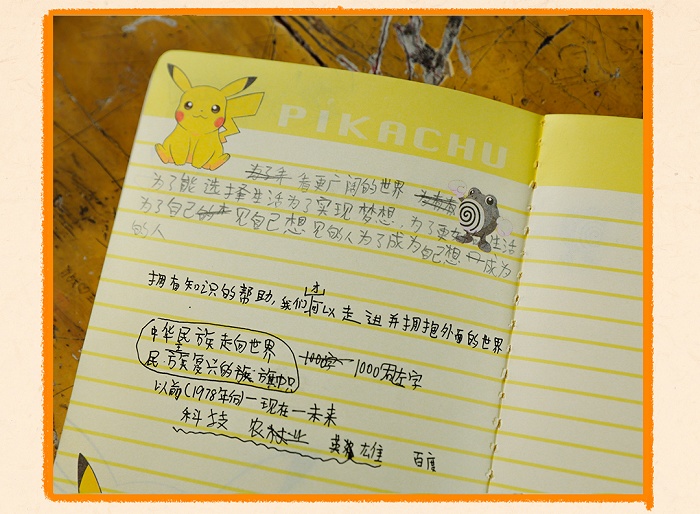 PIKACHU
看更广阔的世界
为了能选择生活为了实现梦想.为了更 生活,
为了自己 见自己想见的人为了成为自己想 成为
的人
拥有知识的帮助,我们才可以走进并拥抱外面的世界
中华民族走向世界
民族复兴的 旗帜 1000字 1000周左字
以前(1978年向一现在一未来
科技 农村业 英雄 百度